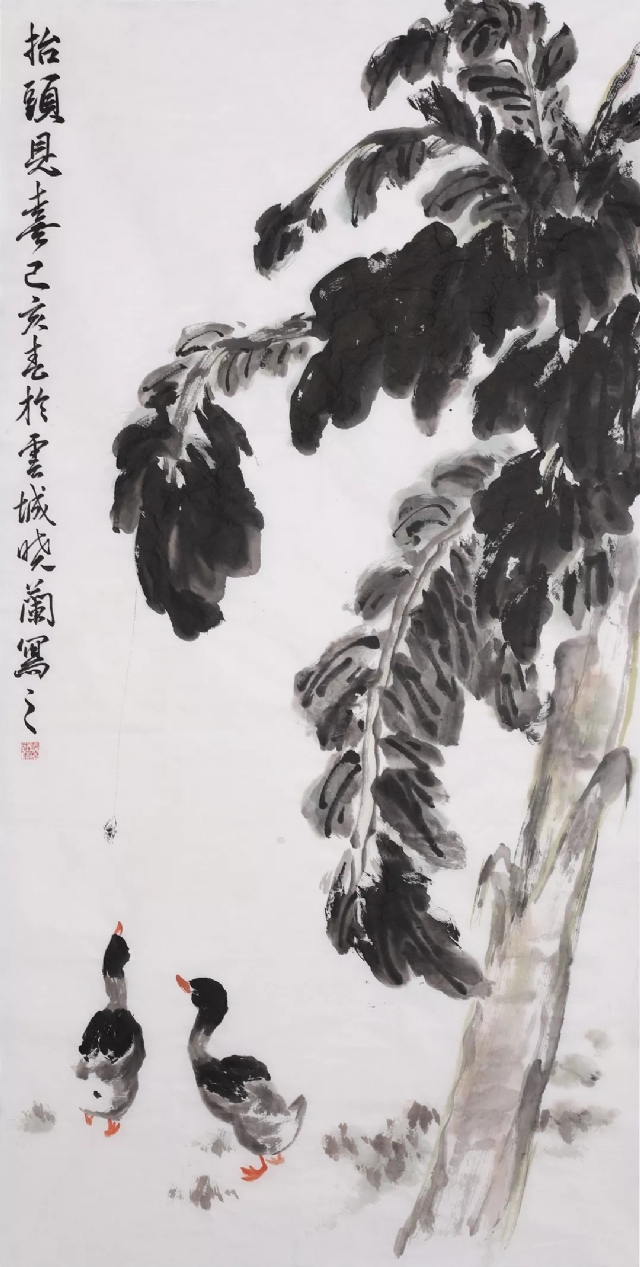 抬頭見喜己亥春於雲城曉蘭寫之